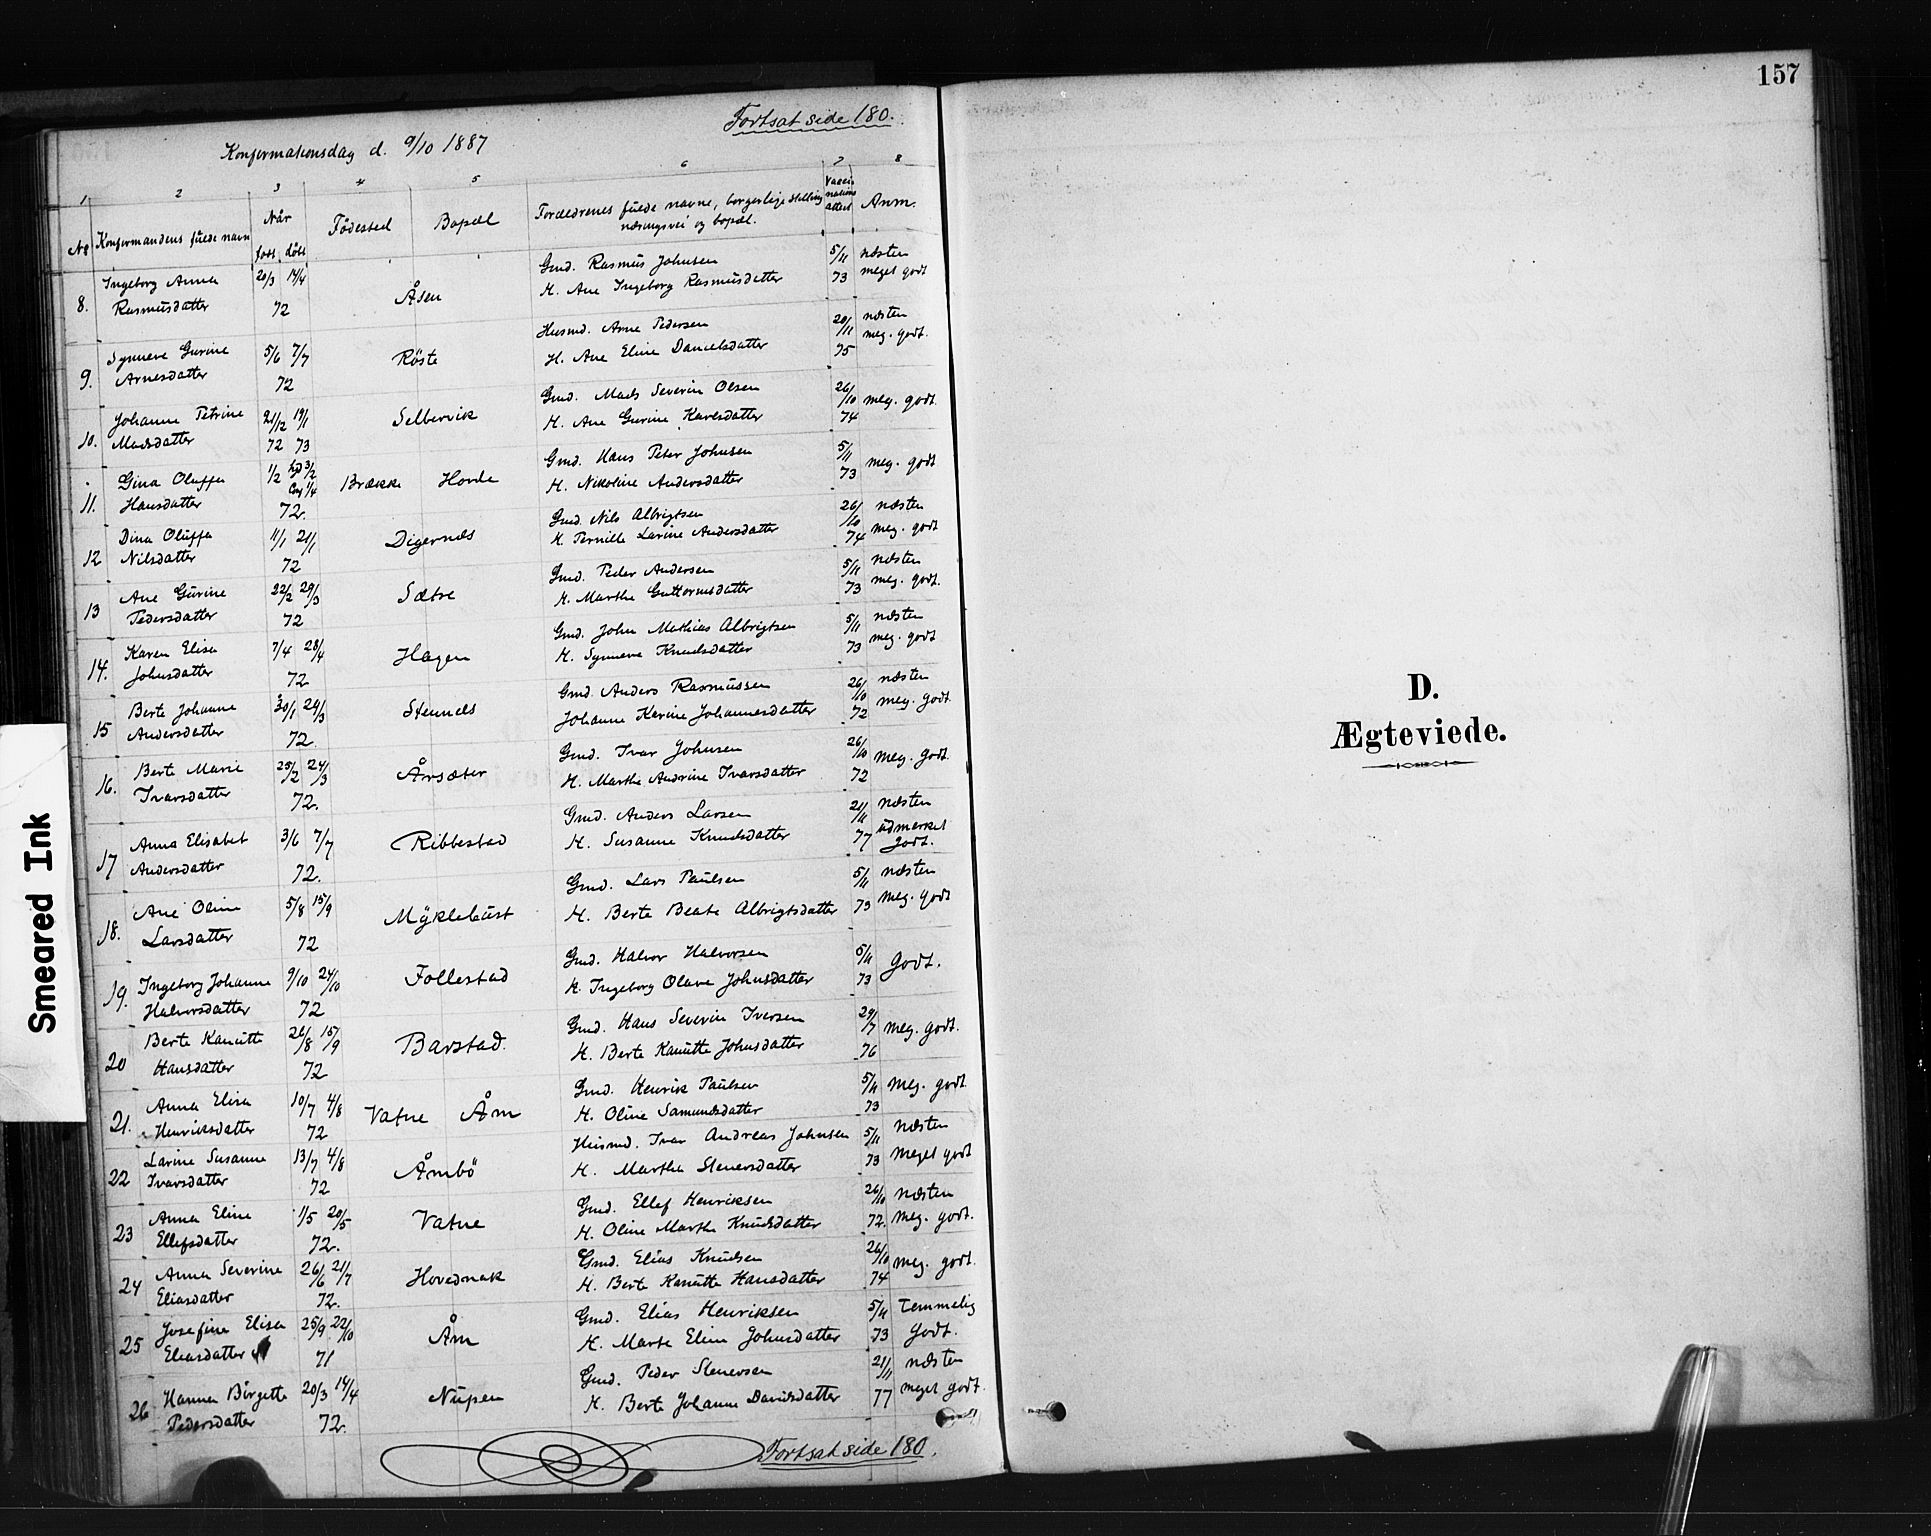 157
Fortsat side 180.
Konfirmationsdag d. 9/10 1887
1 2 3 4 5 6 7 8
No Konfirmandens fulde navn Når født, døbt Fødested Bopæl Forældrenes fulde navne, borgerlige stilling næringsvei og bopæl. Vaccinations attest Anm.
8. Ingeborg Anna 20/3 14/4 Åsen Gmd. Rasmus Johnsen 5/11 næsten
Rasmusdatter 72 H. Ane Ingeborg Rasmusdatter 73 meget godt
9. Synneve Gurine 5/6 7/7 Röste Husmd. Arne Pedersen 20/11 næsten
Arnesdatter 72 H. Ane Eline Danielsdatter 75 meg. godt.
10. Johanne Petrine 21/12 19/1 Selbervik Gmd. Mads Severin Olsen 26/10 meg. godt.
Madsdatter 72 73 H. Ane Gurine Karlsdatter 74
11. Gina Oluffa 1/2 hjd 3/2 Brække Hovde Gmd. Hans Peter Johnsen 5/11 meg. godt
Hansdatter 1/4 72. H. Nikoline Andersdatter 73
12 Dina Oluffa 11/1 21/1 Digernæs Gmd. Nils Albrigtsen 26/10 næsten
Nilsdatter 72 H. Pernille Larine Andersdatter 74 meg. godt
13 Ane Gurine 22/2 29/3 Sætre Gmd. Peder Andersen 5/11 næsten
Pedersdatter 72 H. Marthe Guttormsdatter 73 meg. godt.
14. Karen Elisa 7/4 28/4 Hagen Gmd. John Mathias Albrigtsen 5/11 næsten
Johnsdatter 72 H. Synneve Knudsdatter 73 meg. godt
15 Berte Johanne 30/1 24/3 Stennes Gmd Anders Rasmussen 26/10 næsten
Andersdatter 72. Johanne Karine Johannesdatter 72 meg. godt.
16. Berte Marie 25/2 24/3 Årsæter Gmd. Ivar Johnsen 26/10 meg. godt.
Ivarsdatter 72. H. Marthe Andrine Ivarsdatter 72
17 Anna Elisabet 3/6 7/7 Ribbestad Gmd. Anders Larsen 21/11 næsten
Andersdatter 72. H. Susanne Knudsdatter 77 udmærket godt.
18. Ane Oline 5/8 15/9 Myklebust Gmd. Lars Paulsen 5/11 næsten
Larsdatter 72 H. Berte Beate Albrigtsdatter 73 meg. godt
19. Ingeborg Johanne 9/10 24/10 Follestad Gmd. Halvor Halvorsen 5/11 godt.
Halvorsdatter 72 H. Ingeborg Olave Johnsdatter 73
20 Berte Kanutte 26/8 15/9 Barstad. Gmd. Hans Severin Iversen 29/7 meg. godt.
Hansdatter 72 H. Berte Kanutte Johnsdatter 76
21. Anna Elisa 10/7 4/8 Vatne Åm Gmd. Henrik Paulsen 5/11 meg. godt.
Henriksdatter 72 H. Oline Samundsdatter 73
22 Larine Susanne 13/7 4/8 Åmbö Husmd. Ivar Andreas Johnsen 5/11 næsten
Ivarsdatter 72 H. Marthe Stenersdatter 73 meget godt
23 Anna Eline 1/5 20/5 Vatne Gmd. Ellef Henriksen 26/10 næsten
Ellefsdatter 72. H. Oline Marthe Knudsdatter 72. meg. godt.
24 Anna Severine 26/6 21/7 Hovednak Gmd. Elias Knudsen 26/10 meg. godt.
Eliasdatter 72. H. Berte Kanutte Hansdatter 74
25 Josefine Elisa 25/9 22/10 Åm Gmd. Elias Henriksen 5/11 temmelig
Eliasdatter 71 H. Marte Eline Johnsdatter 73 godt.
26 Hanna Birgette 20/3 14/4 Nupen Gmd. Peder Stenersen 21/11 næsten
Pedersdatter 72. H. Berte Johanne Davidsdatter 77 meget godt.
Fortsat side 180.
Smeared Ink
D.
Ægteviede.